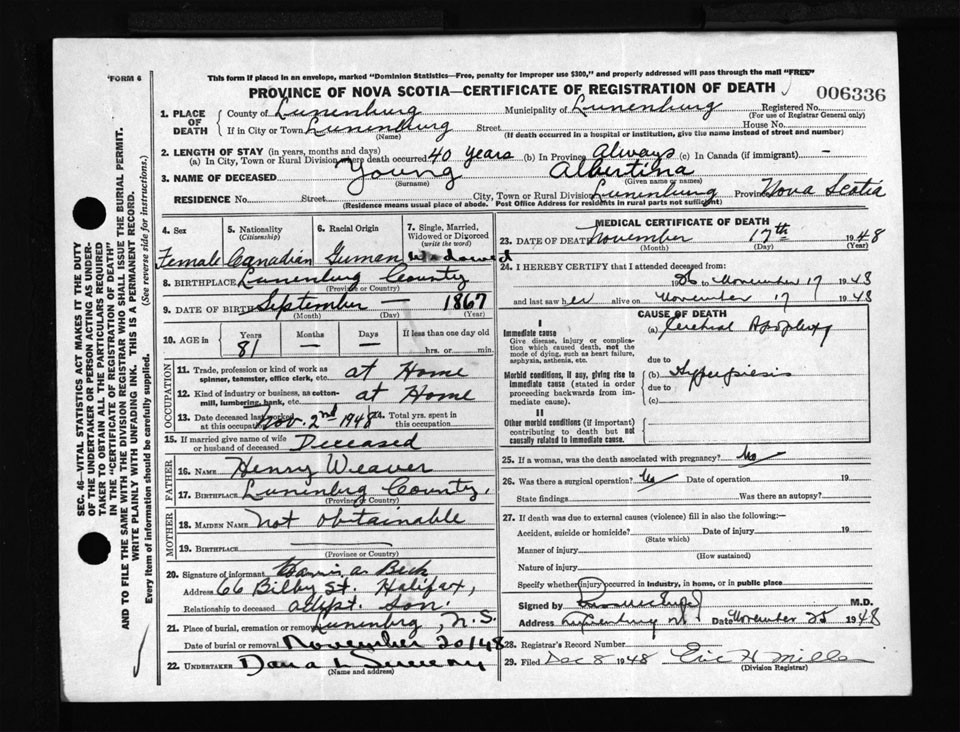 FORM 6
This form if placed in an envelope, marked "Dominion Statistics—Free, penalty for improper use $300," and properly addressed will pass through the mail "FREE"
PROVINCE OF NOVA SCOTIA—CERTIFICATE OF REGISTRATION OF DEATH
006336
1. PLACE OF DEATH
County of Lunenburg Municipality of Lunenburg Registered No.
(For use of Registrar General only)
If in City or Town Lunenburg Street House No.
(Name) (If death occurred in a hospital or institution, give the name instead of street and number)
2. LENGTH OF STAY (in years, months and days)
(a) In City, Town or Rural Division where death occurred 40 years (b) In Province Always (c) In Canada (if immigrant) —
3. NAME OF DECEASED Young Albertina
(Surname) (Given name or names)
RESIDENCE No. Street City, Town or Rural Division Lunenburg Province Nova Scotia
(Residence means usual place of abode. Post Office Address for residents in rural parts not sufficient)
4. Sex Female
5. Nationality (Citizenship) Canadian
6. Racial Origin German
7. Single, Married, Widowed or Divorced (write the word) Widowed
8. BIRTHPLACE Lunenburg County
(Province or County)
9. DATE OF BIRTH September — 1867
(Month) (Day) (Year)
10. AGE in Years 81 Months — Days — If less than one day hrs. or min.
OCCUPATION
11. Trade, profession or kind of work as spinner, teamster, office clerk, etc. at Home
12. Kind of industry or business, as cotton-mill, lumbering, bank, etc. at Home
13. Date deceased last worked at this occupation Nov. 2nd 1948 14. Total yrs. spent in this occupation
15. If married give name of wife or husband of deceased Deceased
FATHER
16. NAME Henry Weaver
17. BIRTHPLACE Lunenbrg County,
(Province or County)
MOTHER
18. MAIDEN NAME not obtainable
19. BIRTHPLACE
(Province or County)
20. Signature of informant
Address 66 Bilby St. Halifax,
Relationship to deceased adopt. Son.
21. Place of burial, cremation or removal Lunenbrg, N.S.
Date of burial or removal November 20/48
22. UNDERTAKER Dana L Sweeny
(Name and address)
MEDICAL CERTIFICATE OF DEATH
23. DATE OF DEATH November 17th 1948
(Month) (Day) (Year)
24. I HEREBY CERTIFY that I attended deceased from:
to November 17 1948
and last saw her alive on November 17 1948
CAUSE OF DEATH
I
Immediate cause
Give disease, injury or complication which caused death, not the mode of dying, such as heart failure, asphyxia, asthenia, etc.
(a) Cerebral Apoplexy
due to
Morbid conditions, if any, giving rise to immediate cause (stated in order proceeding backwards from immediate cause).
(b) Hyperpiesis
due to
(c)
II
Other morbid conditions (if important) contributing to death but not causally related to immediate cause.
25. If a woman, was the death associated with pregnancy? No
26. Was there a surgical operation? No Date of operation 19
State findings Was there an autopsy?
27. If death was due to external causes (violence) fill in also the following:—
Accident, suicide or homicide? Date of injury 19
(State which)
Manner of injury
(How sustained)
Nature of injury
Specify whether injury occurred in industry, in home, or in public place
Signed by M.D.
Address Lunenburg N.S. Date November 25 1948
28. Registrar's Record Number
29. Filed Dec 8 1948 Eric H Mills
(Division Registrar)
SEC. 46—VITAL STATISTICS ACT MAKES IT THE DUTY
OF THE UNDERTAKER OR PERSON ACTING AS UNDER-
TAKER TO OBTAIN ALL THE PARTICULARS REQUIRED
IN THE "CERTIFICATE OF REGISTRATION OF DEATH"
AND TO FILE THE SAME WITH THE DIVISION REGISTRAR WHO SHALL ISSUE THE BURIAL PERMIT.
WRITE PLAINLY WITH UNFADING INK. THIS IS A PERMANENT RECORD.
Every item of information should be carefully supplied. (See reverse side for instructions.)